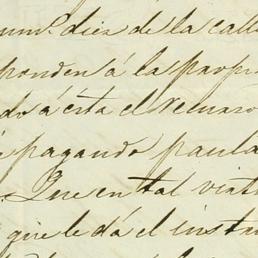 num.º diez de la calle
ponden á la propie
do á esta el recurso
pagando paula
. Que en tal virtu
que le dá el instru